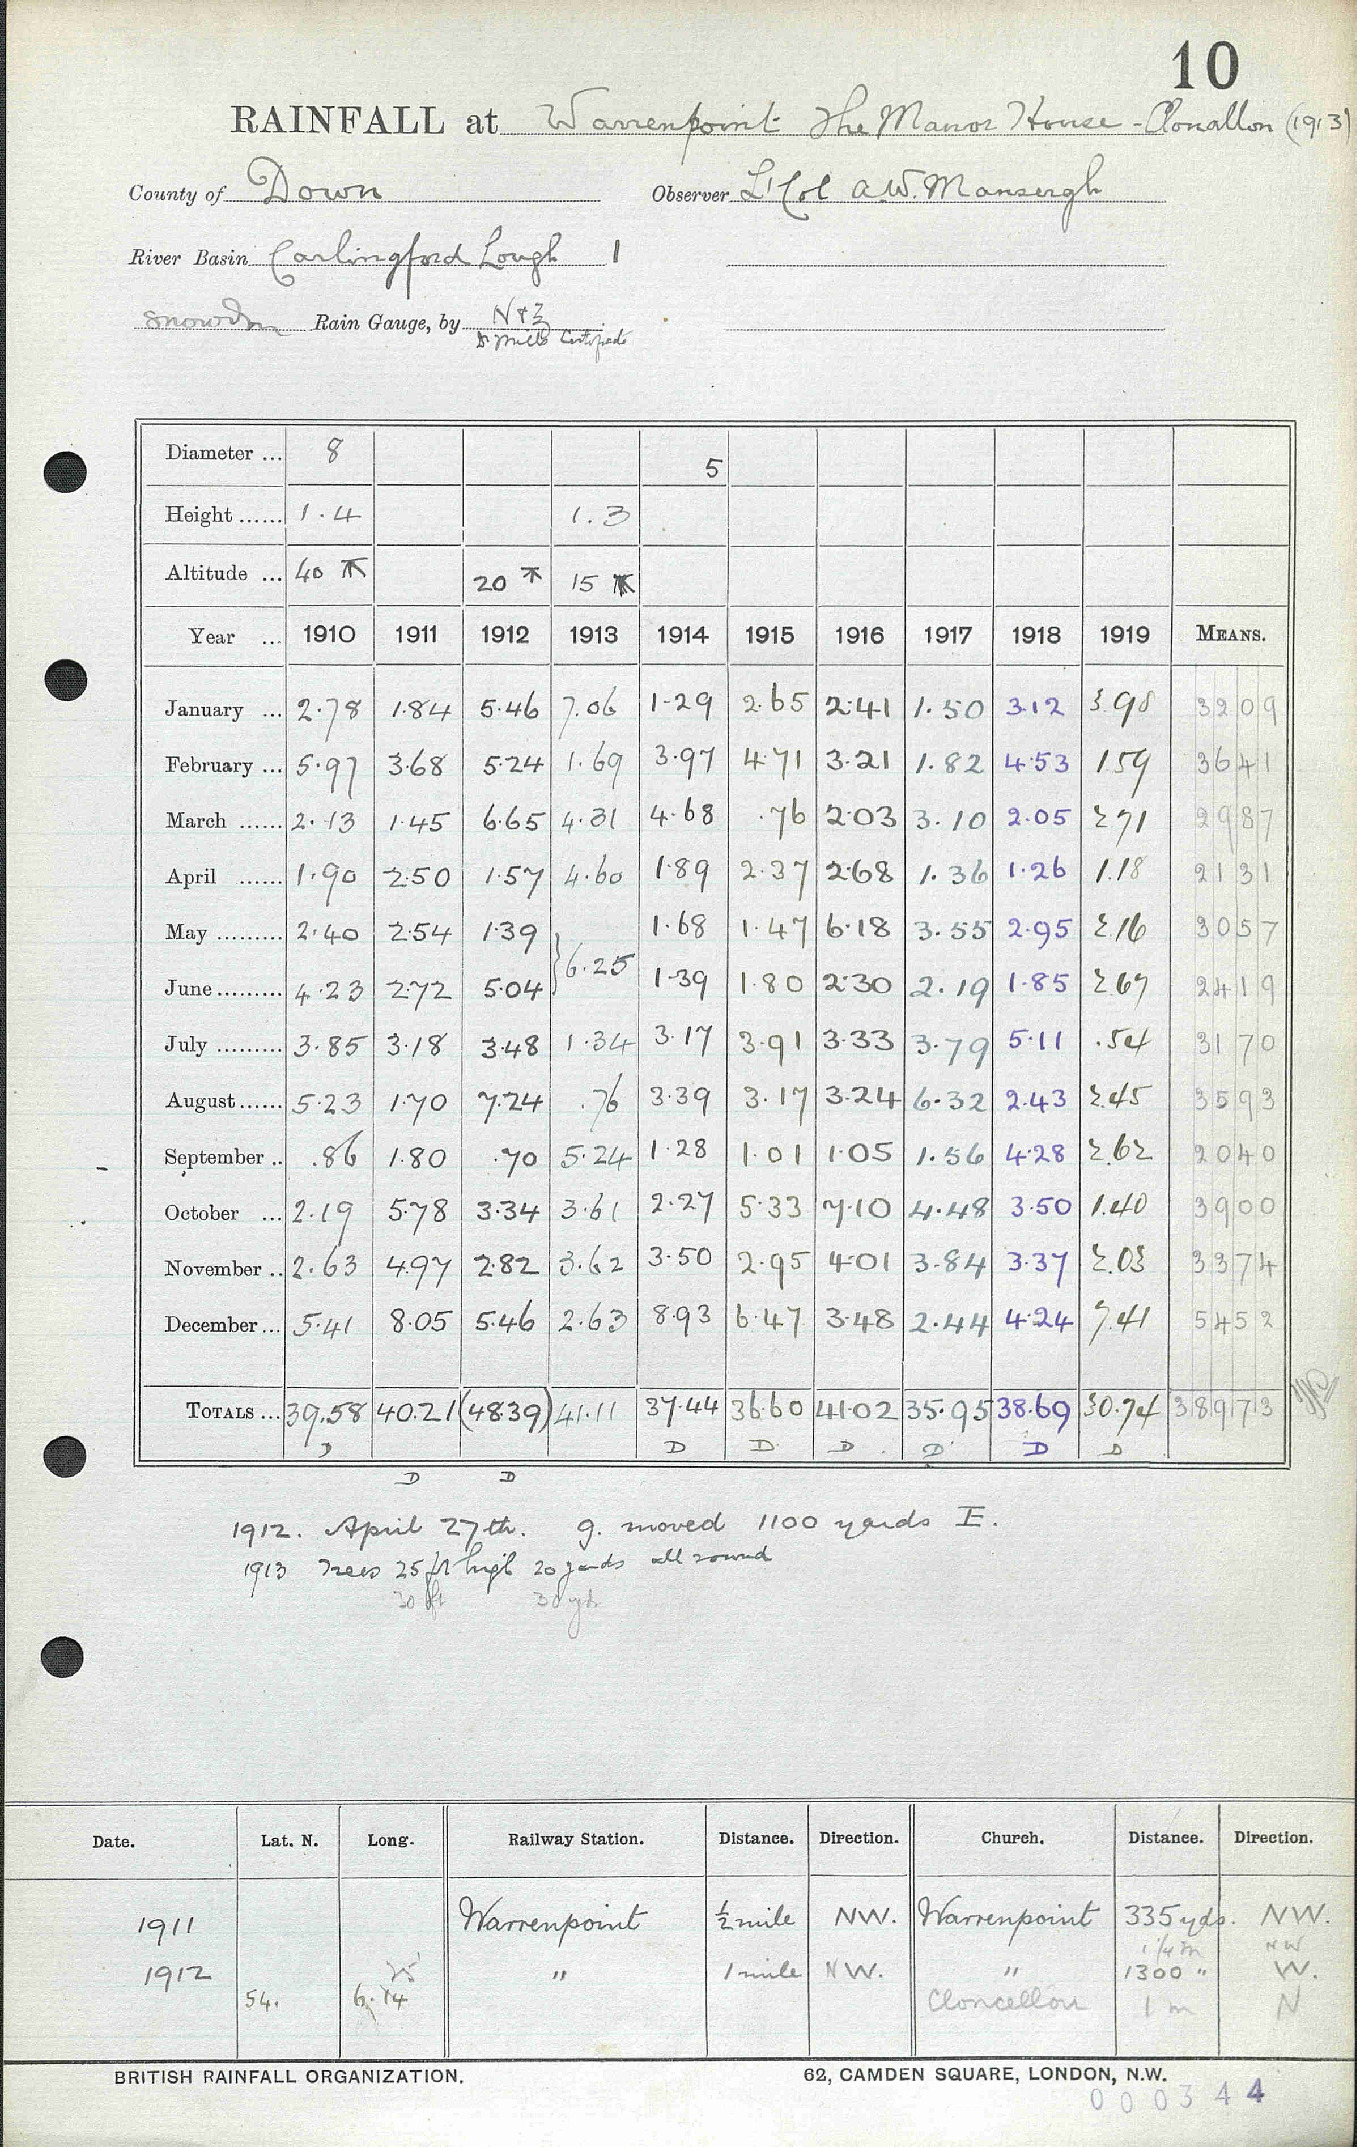 10
RAINFALL at Warrenpoint The Manor House - Clonallon (1913)
County of Down Observer Lt Col A.W. Mansergh
River Basin Carlingford Lough 1
Snowdon Rain Gauge, by N & Z
Dr Mill's Certificate
Diameter ... 8 5
Height ...... 1.4 1.3
Altitude ... 40 20 15
Year ... 1910 1911 1912 1913 1914 1915 1916 1917 1918 1919 MEANS.
January ... 2.78 1.84 5.46 7.06 1.29 2.65 2.41 1.50 3.12 3.98 3209
February ... 5.97 3.68 5.24 1.69 3.97 4.71 3.21 1.82 4.53 1.59 3641
March ...... 2.13 1.45 6.65 4.31 4.68 .76 2.03 3.10 2.05 2.71 2987
April ...... 1.90 2.50 1.57 4.60 1.89 2.37 2.68 1.36 1.26 1.18 2131
May ......... 2.40 2.54 1.39 1.68 1.47 6.18 3.55 2.95 2.16 3057
} 6.25
June ......... 4.23 2.72 5.04 1.39 1.80 2.30 2.19 1.85 2.67 2419
July ......... 3.85 3.18 3.48 1.34 3.17 3.91 3.33 3.79 5.11 .54 3170
August ...... 5.23 1.70 7.24 .76 3.39 3.17 3.24 6.32 2.43 2.45 3593
September .. .86 1.80 .70 5.24 1.28 1.01 1.05 1.56 4.28 2.62 2040
October ... 2.19 5.78 3.34 3.61 2.27 5.33 7.10 4.48 3.50 1.40 3900
November .. 2.63 4.97 2.82 3.62 3.50 2.95 4.01 3.84 3.37 2.03 3374
December ... 5.41 8.05 5.46 2.63 8.93 6.47 3.48 2.44 4.24 7.41 5452
TOTALS ... 39.58 40.21 (48.39) 41.11 37.44 36.60 41.02 35.95 38.69 30.74 38973
D D D D D D D
D D
1912. April 27th. g. moved 1100 yards E.
1913 Trees 25 ft high 20 yards all round
30 ft 30 yds
Date. Lat. N. Long. Railway Station. Distance. Direction. Church. Distance. Direction.
1911 Warrenpoint ½ mile NW. Warrenpoint 335 yds. NW.
1¼ m NW
1912 " 1 mile NW. " 1300 " W.
54. 6. 14 Cloncellon 1 m N
BRITISH RAINFALL ORGANIZATION. 62, CAMDEN SQUARE, LONDON, N.W.
000344